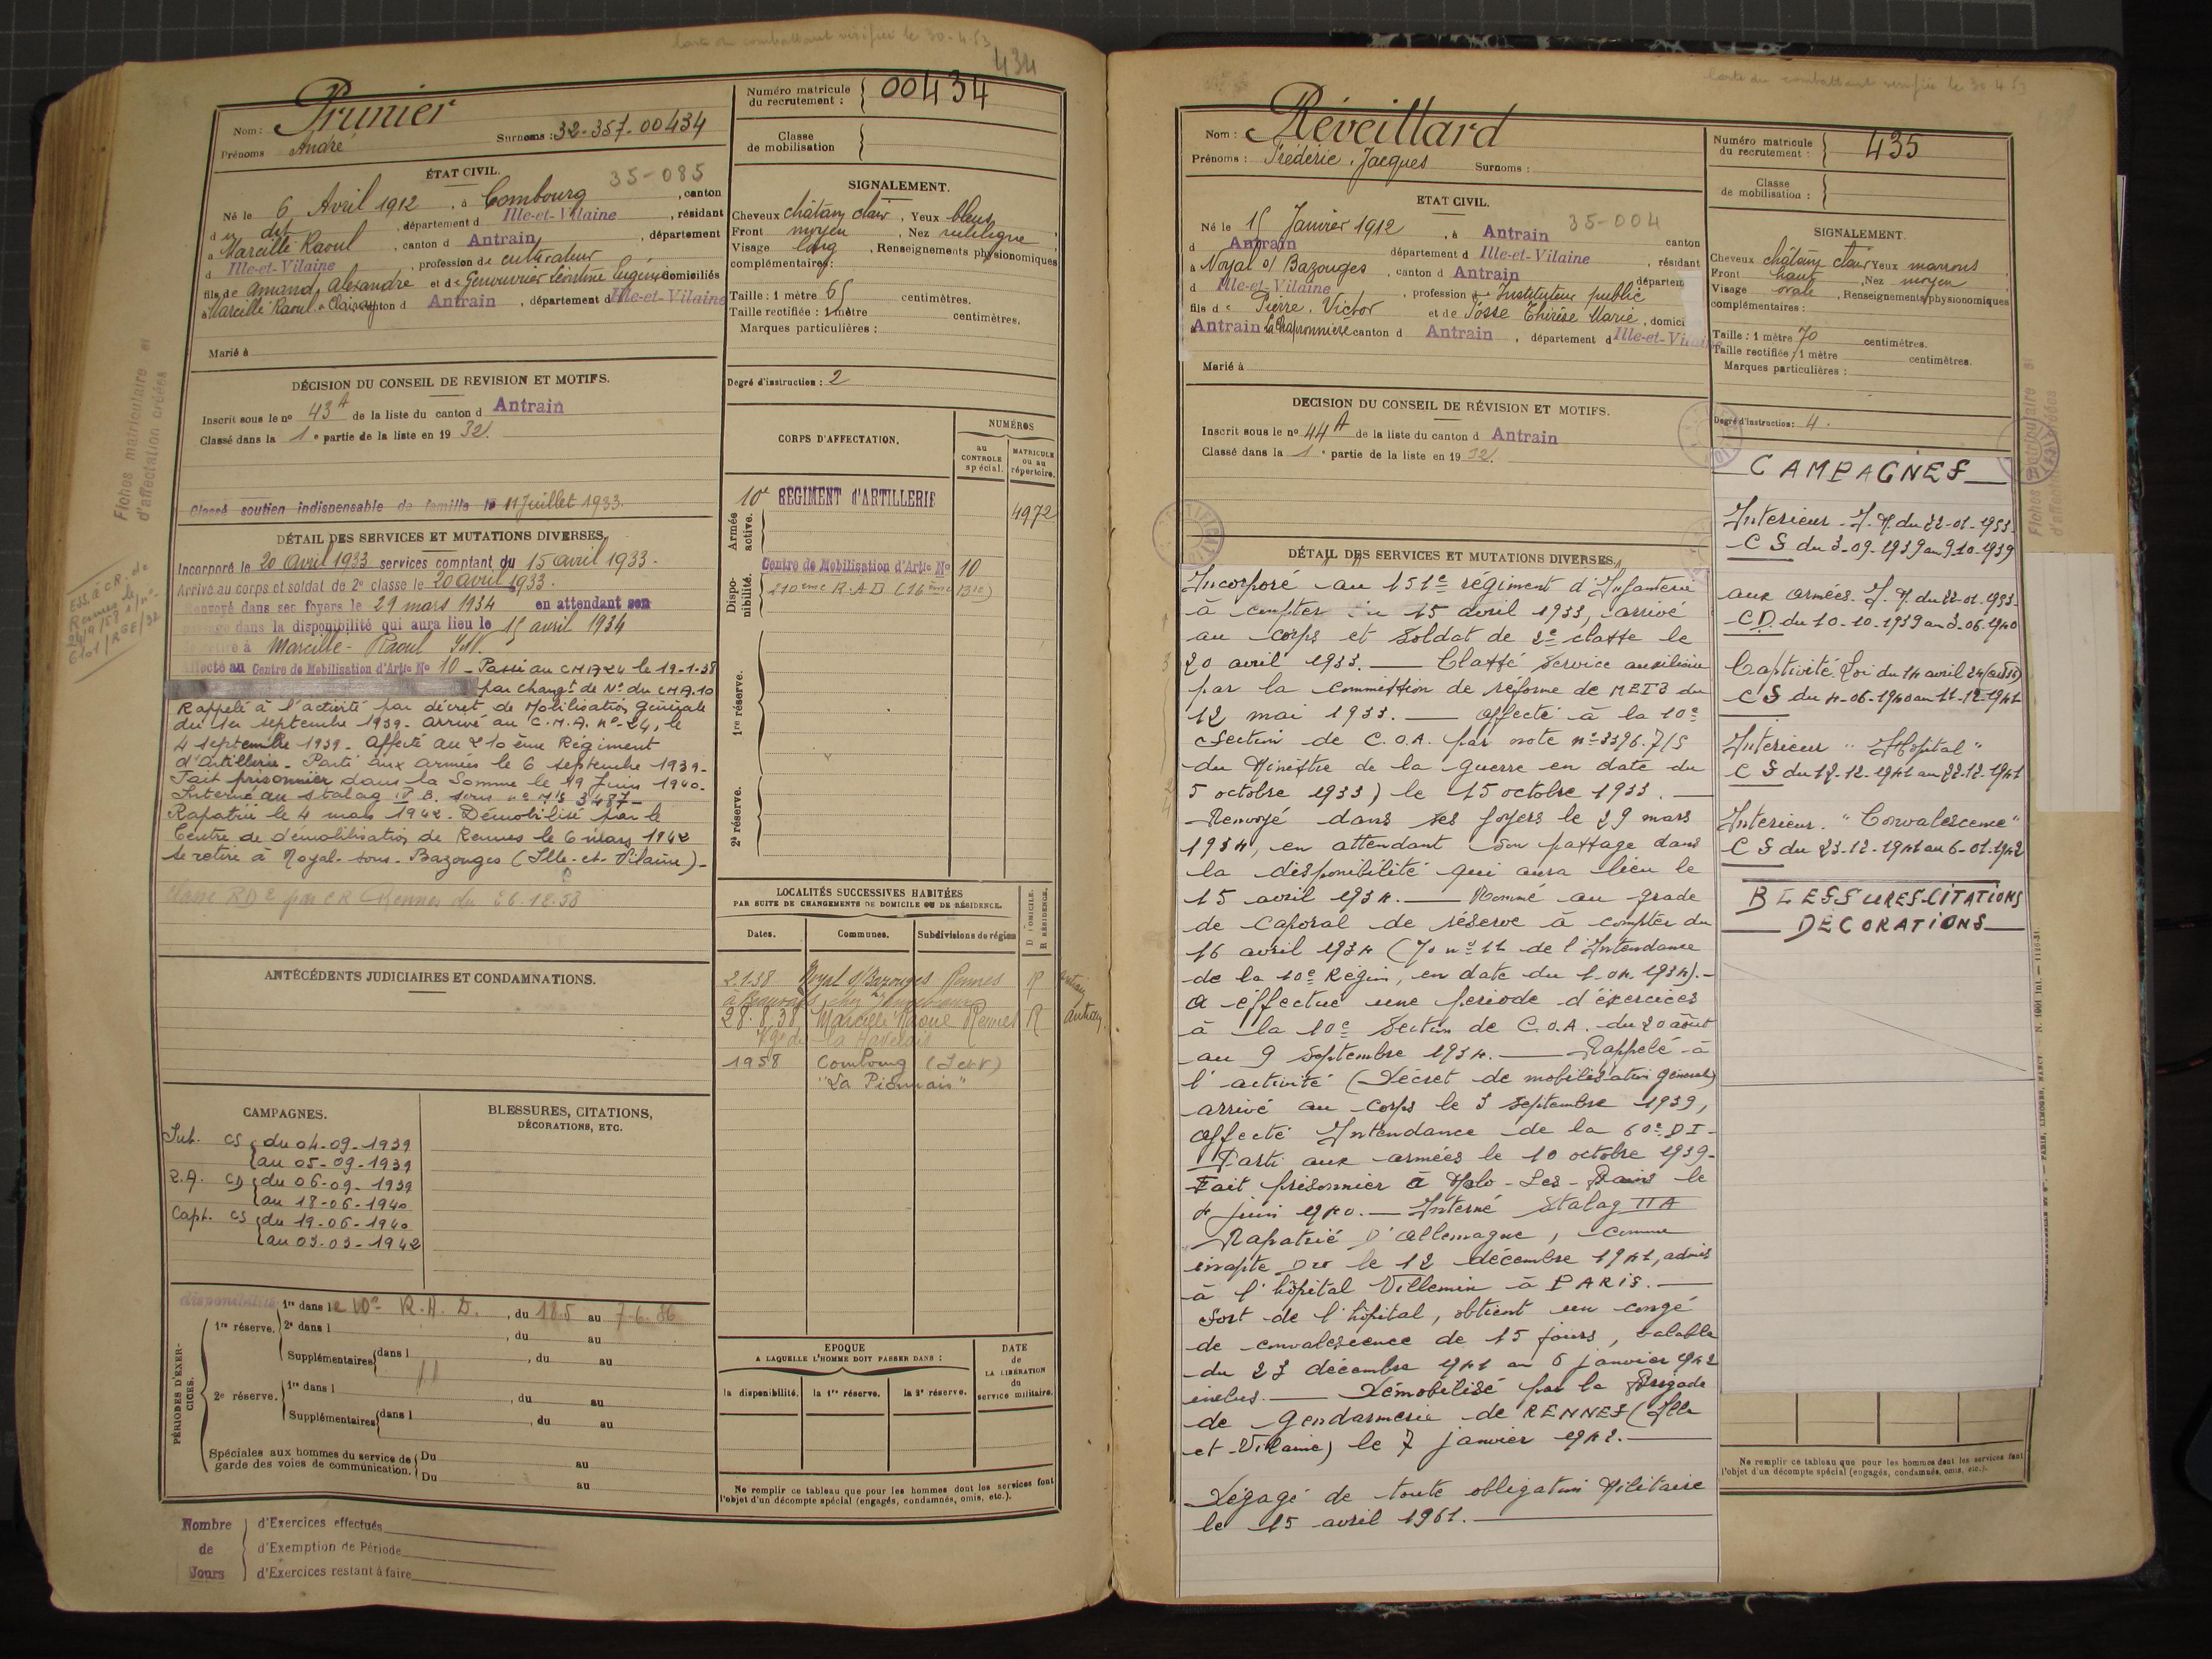 Carte du combattant vérifiée le 30-4-53
434
Nom : Prunier
Prénoms André
Surnoms : 32-357-00434
ÉTAT CIVIL.
35-085
Né le 6 Avril 1912, à Combourg, canton
d u dit, département d Ille-et-Vilaine, résidant
à Marcillé Raoul, canton d Antrain, département
d Ille-et-Vilaine, profession de cultivateur
fils de Amand, Alexandre et de Genouvrier Eugénie domiciliés
à Marcillé Raoul, canton d Antrain, département d Ille-et-Vilaine
Marié à
DÉCISION DU CONSEIL DE REVISION ET MOTIFS.
Inscrit sous le no 43A de la liste du canton d Antrain
Classé dans la 1e partie de la liste en 19 32.
Classé soutien indispensable de famille le 11 Juillet 1933.
DÉTAIL DES SERVICES ET MUTATIONS DIVERSES.
Incorporé le 20 Avril 1933 services comptant du 15 avril 1933.
Arrivé au corps et soldat de 2e classe le 20 avril 1933.
Renvoyé dans ses foyers le 29 mars 1934 en attendant son
passage dans la disponibilité qui aura lieu le 15 avril 1934
Se retire à Marcillé-Raoul I&V.
Affecté au Centre de Mobilisation d'Artie No 10 - Passé au CMA 24 le 19-1-38
par changt de No du CMA.10
Rappelé à l'activité par décret de Mobilisation générale
du 1er septembre 1939. Arrivé au C.M.A. no-24, le
4 septembre 1939. Affecté au 210 ème Régiment
d'Artillerie. Parti aux armées le 6 septembre 1939-
Fait prisonnier dans la Somme le 19 Juin 1940.
Interné au stalag IV B. sous no Mle 3487-
Rapatrié le 4 mars 1942. Démobilisé par le
Centre de démobilisation de Rennes le 6 mars 1942
se retire à Noyal-sous-Bazouges (Ille-et-Vilaine)-
Classé RD2 par CR Rennes du 26.12.53
Fiches matriculaire et
d'affectation créées
ESS. à CR. de
Rennes le
6101/RGE/32
ANTÉCÉDENTS JUDICIAIRES ET CONDAMNATIONS.
CAMPAGNES.
Int. CS du 04-09-1939
au 05-09-1939
Z.A. CD du 06-09-1939
au 18-06-1940
Capt. CS du 19-06-1940
au 03-03-1942
BLESSURES, CITATIONS,
DÉCORATIONS, ETC.
PÉRIODES D'EXERCICES.
disponibilité 1re dans le 10e R.A.D., du 18.5 au 7-6-36
1re réserve. 2e dans l, du au
Supplémentaires dans l, du au
2e réserve. 1re dans l, du au
Supplémentaires dans l, du au
Spéciales aux hommes du service de
garde des voies de communication. Du au
Du au
Nombre de Jours
d'Exercices effectués
d'Exemption de Période
d'Exercices restant à faire
Numéro matricule
du recrutement : 00434
Classe
de mobilisation
SIGNALEMENT.
Cheveux châtain clair, Yeux bleus
Front moyen, Nez rectiligne
Visage long, Renseignements physionomiques
complémentaires:
Taille : 1 mètre 65 centimètres.
Taille rectifiée : 1 mètre centimètres.
Marques particulières :
Degré d'instruction : 2
CORPS D'AFFECTATION.
NUMÉROS
au
CONTROLE
spécial.
MATRICULE
ou au
répertoire.
Armée active.
10e RÉGIMENT d'ARTILLERIE
4972
Disponibilité.
Centre de Mobilisation d'Artie No 10
210ème R.A.D (16ème Bie)
1re réserve.
2e réserve.
LOCALITÉS SUCCESSIVES HABITÉES
PAR SUITE DE CHANGEMENTS DE DOMICILE OU DE RÉSIDENCE.
D DOMICILE.
R RÉSIDENCE.
Dates. Communes. Subdivisions de région
2.1.38 Noyal s/Bazouges Rennes R
28.8.38 Marcillé Raoul Rennes R Antrain
1958 Combourg (I et V)
"La Pionnais"
EPOQUE
A LAQUELLE L'HOMME DOIT PASSER DANS :
la disponibilité. la 1re réserve. la 2e réserve.
DATE
de
LA LIBÉRATION
du
service militaire.
Ne remplir ce tableau que pour les hommes dont les services font
l'objet d'un décompte spécial (engagés, condamnés, omis, etc.).
Carte du combattant vérifiée le 30 4 53
Nom : Réveillard
Prénoms : Frédéric, Jacques
Surnoms :
ETAT CIVIL.
35-004
Né le 15 Janvier 1912, à Antrain canton
d Antrain département d Ille-et-Vilaine, résidant
à Noyal s/ Bazouges, canton d Antrain
d Ille-et-Vilaine, profession d'Instituteur public départem
fils de Pierre, Victor et de Josse Thérèse Marie, domici
à Antrain La Chaponnière canton d Antrain, département d Ille-et-Vilaine
Marié à
DECISION DU CONSEIL DE RÉVISION ET MOTIFS.
Inscrit sous le no 44A de la liste du canton d Antrain
Classé dans la 1e partie de la liste en 19 32.
DÉTAIL DES SERVICES ET MUTATIONS DIVERSES.
Incorporé au 151e régiment d'Infanterie
à compter du 15 avril 1933, arrivé
au corps et soldat de 2e classe le
20 avril 1933. — Classé service auxiliaire
par la commission de réforme de METZ du
12 mai 1933. — Affecté à la 10e
Section de C.O.A. par note no 3396.7/S
du Ministre de la Guerre en date du
5 octobre 1933) le 15 octobre 1933. —
Renvoyé dans ses foyers le 29 mars
1934, en attendant son passage dans
la disponibilité qui aura lieu le
15 avril 1934. — Nommé au grade
de Caporal de réserve à compter du
16 avril 1934 (Jo no 11 de l'Intendance
de la 10e Région, en date du 1-04.1934).-
A effectué une période d'exercices
à la 10e Section de C.O.A. du 20 août
au 9 septembre 1934. — Rappelé à
l'activité (Décret de mobilisation générale)
arrivé au corps le 3 septembre 1939,
affecté Intendance de la 60e DI-
Parti aux armées le 10 octobre 1939-
Fait prisonnier à Malo-Les-Bains le
4 juin 1940. — Interné Stalag II A
Rapatrié d'Allemagne, comme
inapte le 12 décembre 1941, admis
à l'hôpital Villemin à PARIS. —
Sort de l'hôpital, obtient un congé
de convalescence de 15 jours, valable
du 23 décembre 1941 au 6 janvier 1942
inclus. — Démobilisé par la Brigade
de Gendarmerie de RENNES (Ille
et-Vilaine) le 7 janvier 1942. —
Dégagé de toute obligation Militaire
le 15 avril 1961. —
Numéro matricule
du recrutement : 435
Classe
de mobilisation :
SIGNALEMENT.
Cheveux châtain clair Yeux marrons
Front haut, Nez moyen
Visage ovale, Renseignements physionomiques
complémentaires :
Taille : 1 mètre 70 centimètres.
Taille rectifiée : 1 mètre centimètres.
Marques particulières :
Degré d'instruction : 4.
CAMPAGNES
Interieur - I.M. du 22-01-1953-
CS du 3-09-1939 au 9-10-1939
aux armées. I.M. du 22-01-1953-
CD. du 10-10-1939 au 3-06-1940
Captivité. Loi du 14 avril 24 (art 36)
CS du 4-06-1940 au 11-12-1941
Interieur "Hôpital"
CS du 12-12-1941 au 22-12-1941
Interieur. "Convalescence"
CS du 23-12-1941 au 6-01-1942
BLESSURES-CITATIONS
DECORATIONS
Ne remplir ce tableau que pour les hommes dont les services font
l'objet d'un décompte spécial (engagés, condamnés, omis, etc.).